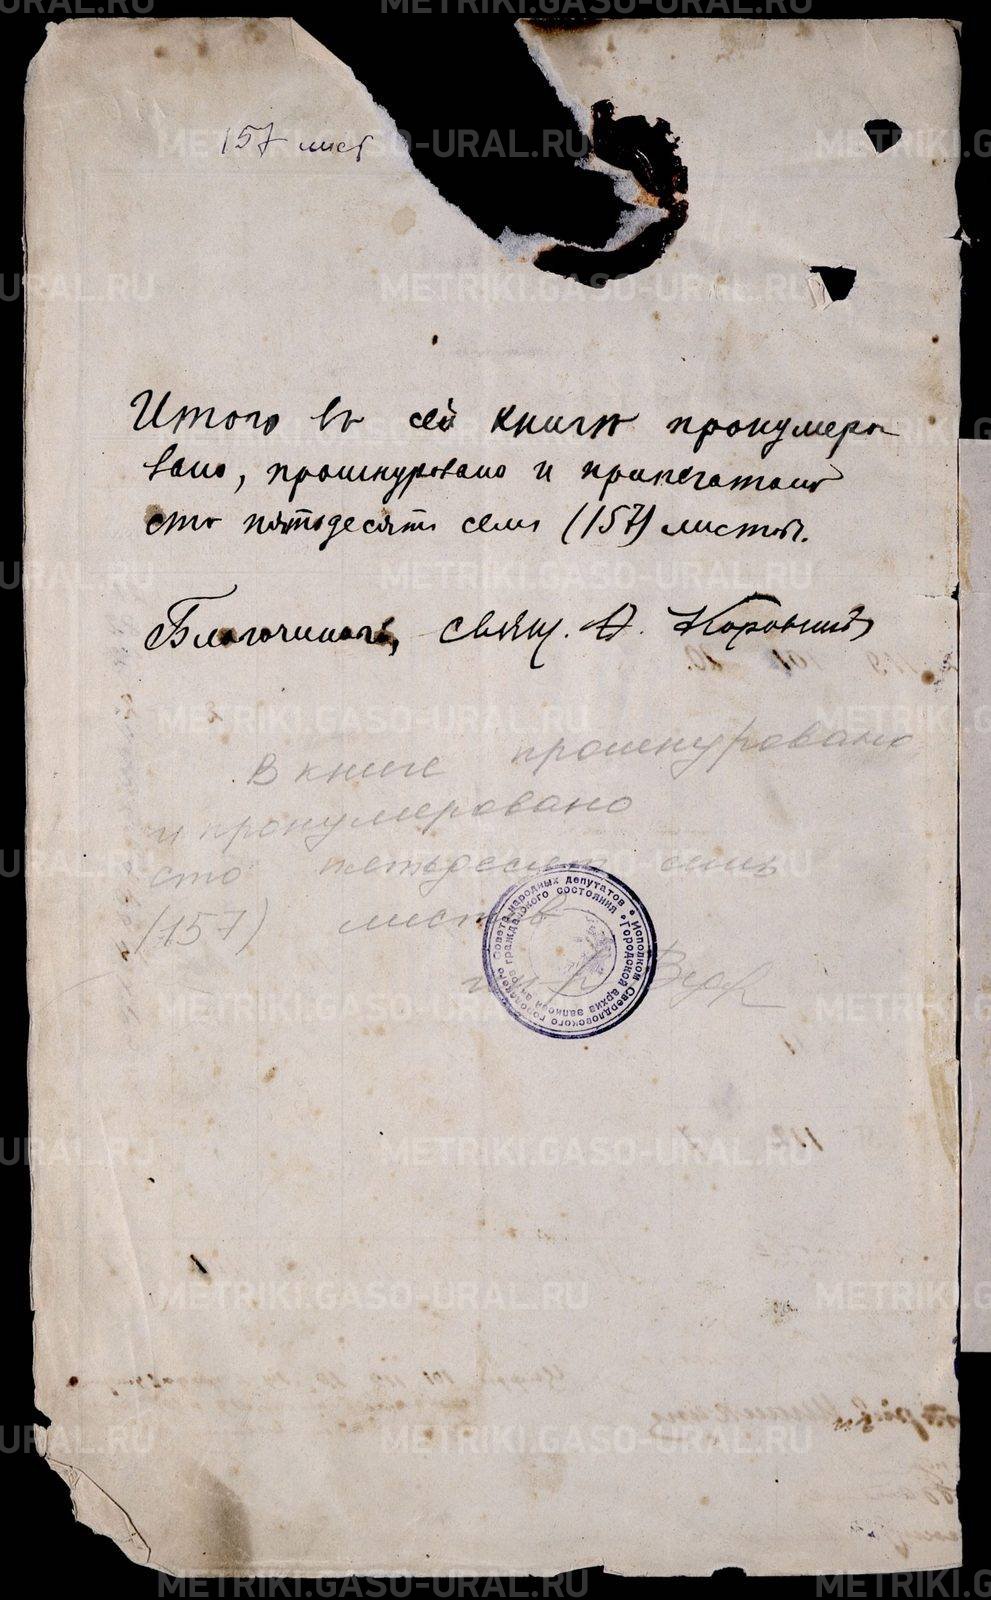 157 лист
Итого въ сей книгѣ пронумеро
вано, прошнуровано и припечатано
сто пятьдесятъ семь (157) листовъ.
Благочинный, свящ. А. Коровинъ
В книге прошнуровано
и пронумеровано
сто пятьдесят семь
(157) листов
Исполком Свердловского городского Совета народных депутатов
Городской архив записей актов гражданского состояния
METRIKI.GASO-URAL.RU